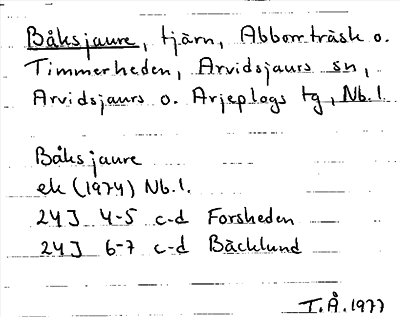 Båksjaure, tjärn, Abborrträsk o.
Timmerheden, Arvidsjaurs sn,
Arvidsjaurs o. Arjeplogs tg, Nb.l.
Båksjaure
ek (1974) Nb.l.
24J 4-5 c-d Forsheden
24J 6-7 c-d Bäcklund
T.Å.1977